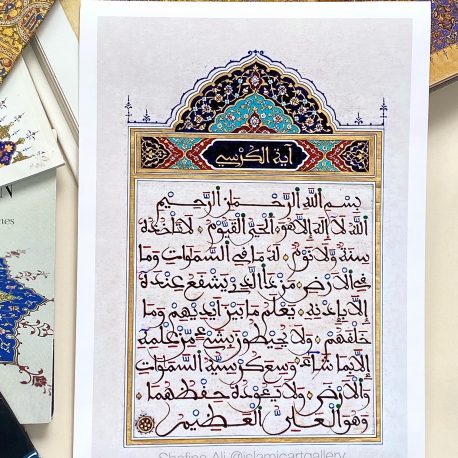 آية الكرسي
بسم الله الرحمن الرحيم
الله لا إله إلا هو الحي القيوم لا تأخذه
سنة ولا نوم له ما في السموات وما
في الأرض من ذا الذي يشفع عنده
إلا بإذنه يعلم ما بين أيديهم وما
خلفهم ولا يحيطون بشيء من علمه
إلا بما شاء وسع كرسيه السموات
والأرض ولا يئوده حفظهما
وهو العلي العظيم
Ali @islamicartgallery